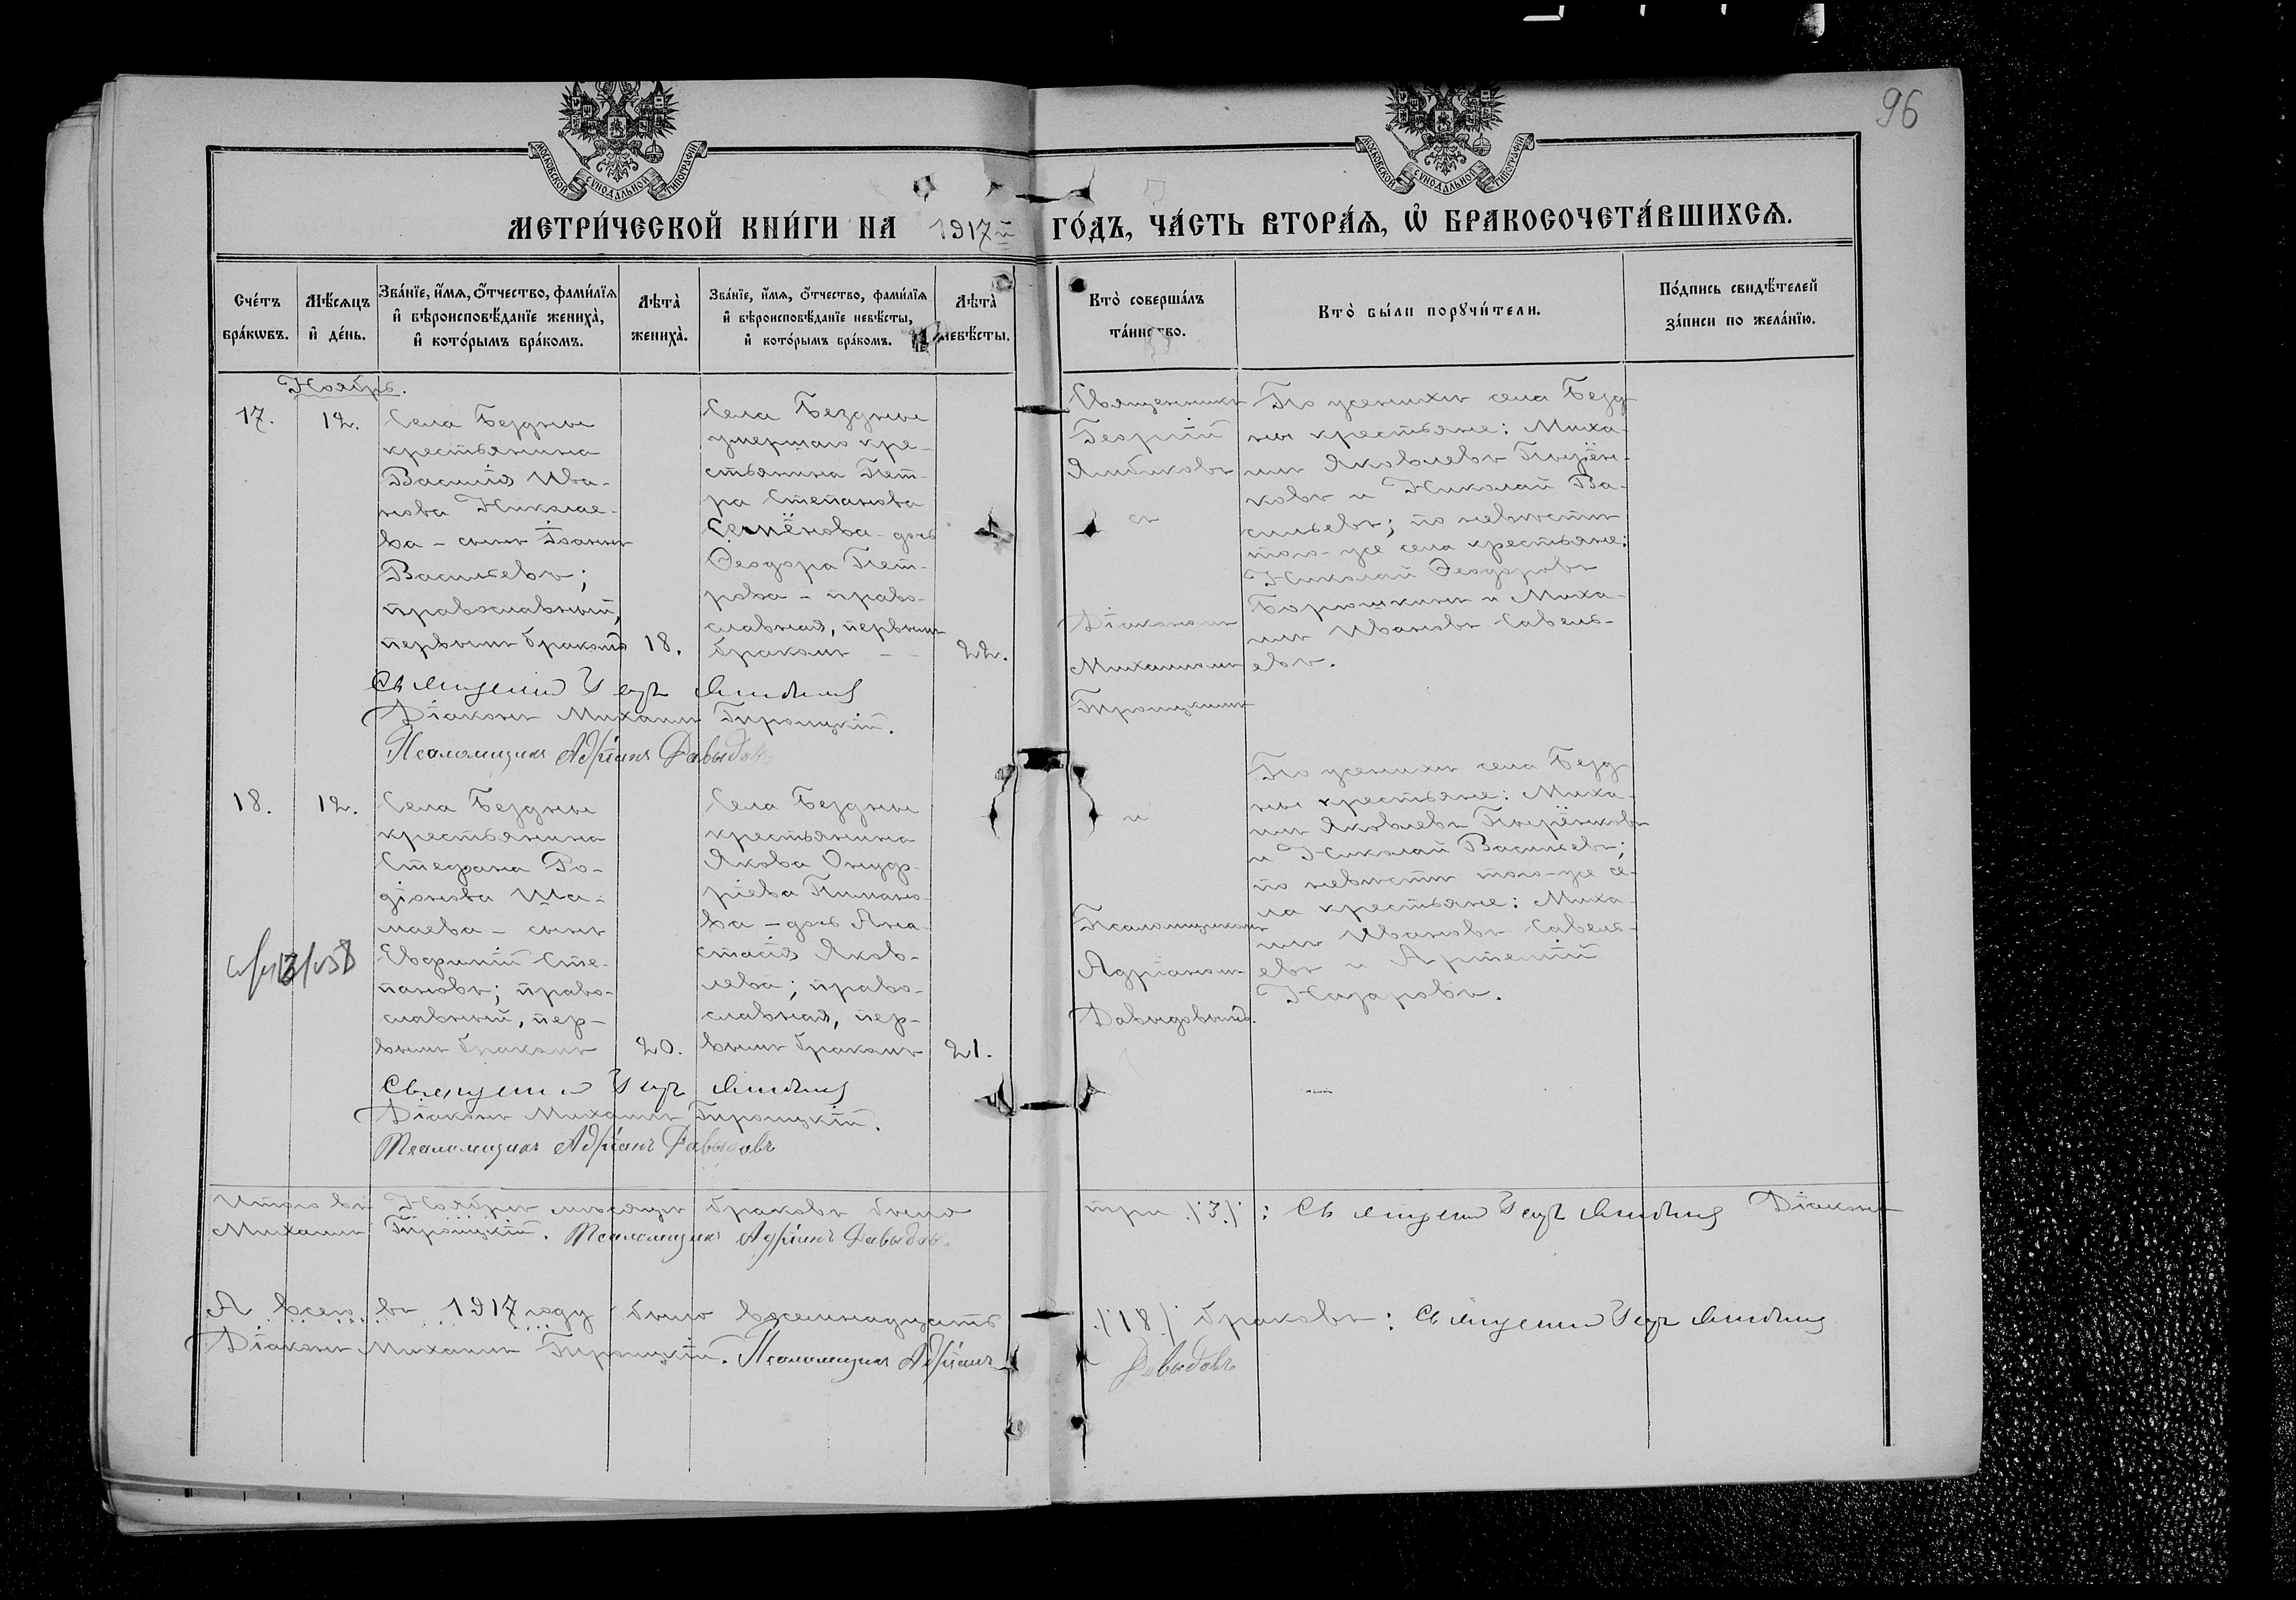 96
МОСКОВСКОЙ СѴНОДАЛЬНОЙ ТИПОГРАФІИ
МОСКОВСКОЙ СѴНОДАЛЬНОЙ ТИПОГРАФІИ
МЕТРИ́ЧЕСКОЙ КНИ́ГИ НА 1917й ГО́ДЪ, ЧА́СТЬ ВТОРА́Ѧ, Ѡ҆ БРАКОСОЧЕТА́ВШИХСѦ.
Сче́тъ бра́кѡвъ.
Мѣ́сѧцъ и҆ де́нь.
Зва́нїе, и҆́мѧ, ѻ҆́тчество, фамилїѧ
и҆ вѣроисповѣ́данїе жениха̀,
и҆ кото́рымъ бра́комъ.
Лѣта̀ жениха̀.
Зва́нїе, и҆́мѧ, ѻ҆́тчество, фами́лїѧ
и҆ вѣроисповѣ́данїе невѣ́сты,
и҆ кото́рымъ бра́комъ.
Лѣта̀ невѣ́сты.
Кто̀ соверша́лъ
та́инство.
Кто̀ бы́ли порꙋчи́тели.
По́дпись свидѣ́телей
за́писи по жела́нїю.
Ноябрь.
17.
12.
Села Бездны
крестьянина
Василія Ива-
нова Николае-
ва - сынъ Іоаннъ
Васильевъ;
православный,
первымъ бракомъ
18.
Села Бездны
умершаго кре-
стьянина Пет-
ра Степанова
Семёнова - дочь
Ѳеодора Пет-
рова - право-
славная, первымъ
бракомъ
22.
Священникъ
Георгій
съ
Діакономъ
Михаиломъ
Троицкимъ
По женихѣ села Безд-
ны крестьяне: Миха-
илъ Яковлевъ
и Николай Ва-
сильевъ; по невѣстѣ
того-же села крестьяне:
Николай Ѳеодоровъ
Борюшкинъ и Миха-
илъ Ивановъ Савель-
евъ.
Діаконъ Михаилъ Троицкій.
Псаломщикъ Адріанъ Давыдовъ
18.
12.
Села Бездны
крестьянина
Стефана Ро-
діонова Ша-
маева - сынъ
Евфимій Сте-
пановъ; право-
славный, пер-
вымъ бракомъ
20.
Села Бездны
крестьянина
Якова Онуф-
ріева
ва - дочь Ана-
стасія Яков-
лева; право-
славная, пер-
вымъ бракомъ
21.
и
Псаломщикомъ
Адріаномъ
Давыдовымъ.
По женихѣ села Безд-
ны крестьяне: Миха-
илъ Яковлевъ
и Николай Васильевъ;
по невѣстѣ того-же се-
ла крестьяне: Миха-
илъ Ивановъ Савель-
евъ и Артемій
Назаровъ.
Діаконъ Михаилъ Троицкій.
Псаломщикъ Адріанъ Давыдовъ
Итого въ Ноябрѣ мѣсяцѣ браковъ было три /:3:/: Діаконъ
Михаилъ Троицкій. Псаломщикъ Адріанъ Давыдовъ.
А всего въ 1917 году было восемнадцать /:18:/ браковъ:
Діаконъ Михаилъ Троицкій. Псаломщикъ Адріанъ Давыдовъ